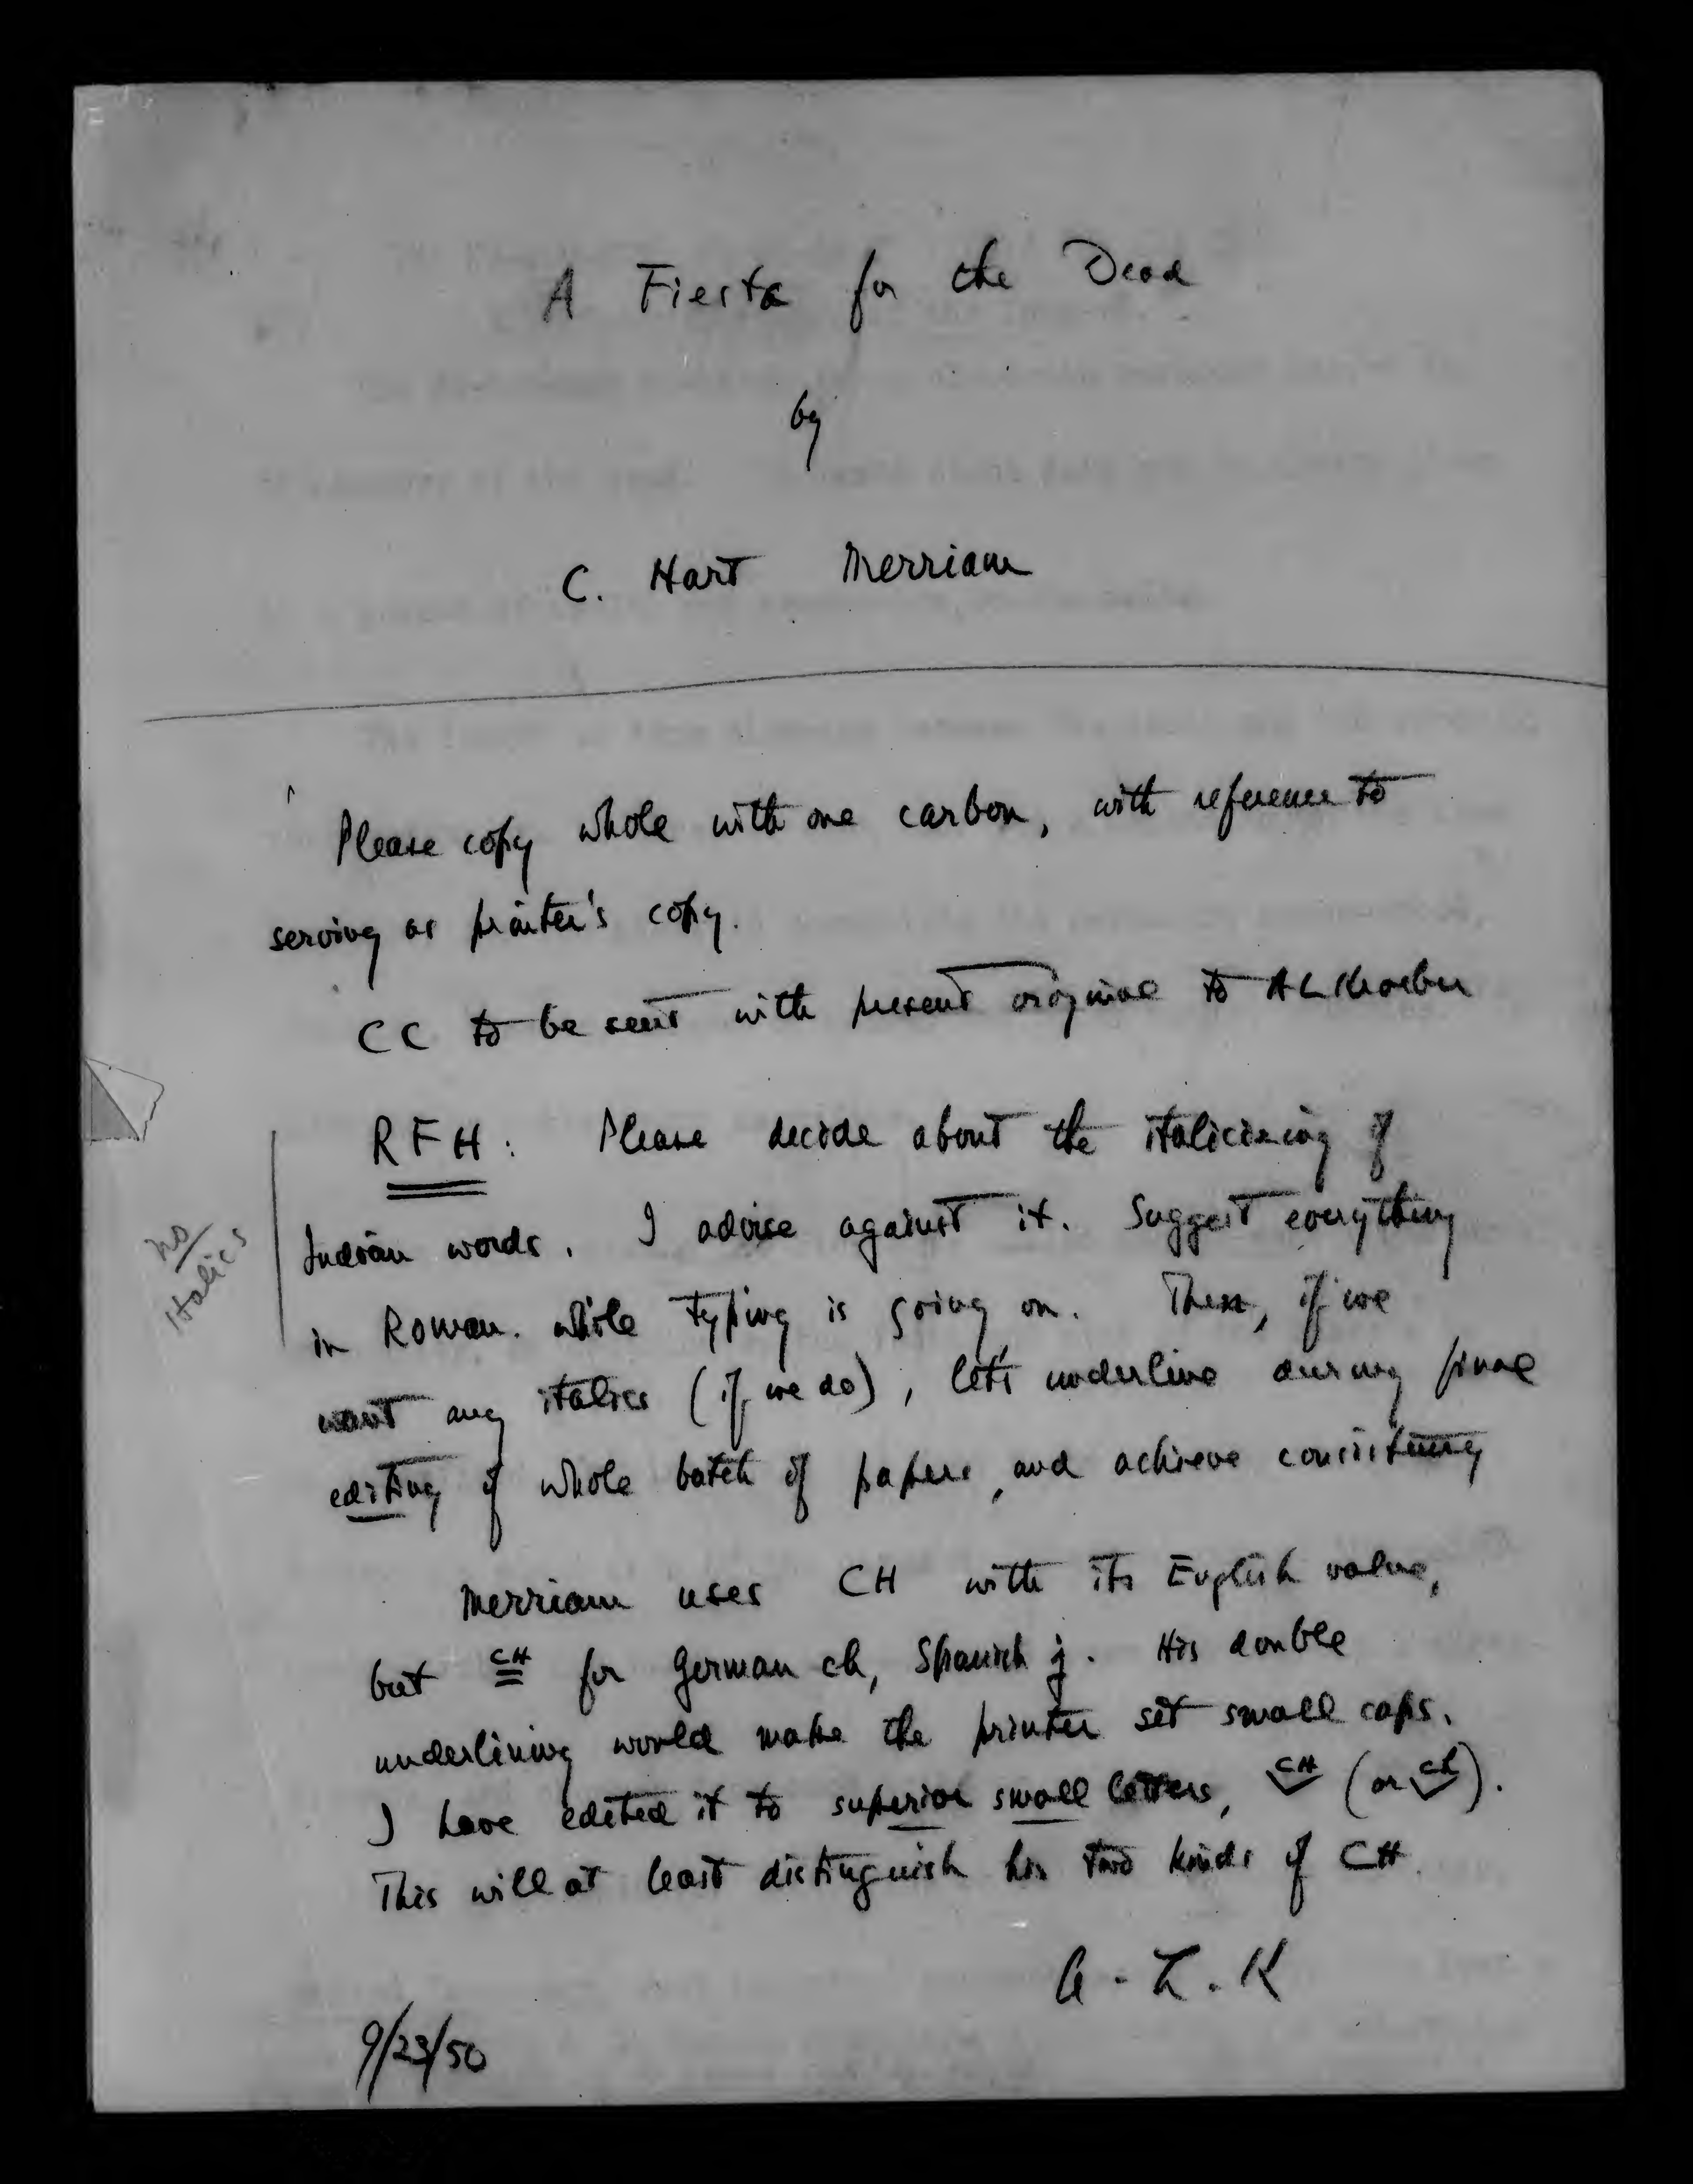 A Fiesta for the Dead
by
C. Hart Merriam
Please copy whole with one carbon, with reference to
serving as printer's copy.
CC to be sent with present original to A L Kroeber
RFH: Please decide about the italicizing of
Indian words. I advise against it. Suggest everything
in Roman. while typing is going on. Then, if we
want any italics (if we do), let's underline during final
editing of whole batch of papers, and achieve consistency
no
italics
Merriam uses CH with its English value,
but CH for German ch, Spanish j. His double
underlining would make the printer set small caps.
I have edited it to superior small letters, CH (or ch).
This will at least distinguish his two kinds of CH.
A. L. K
9/23/50